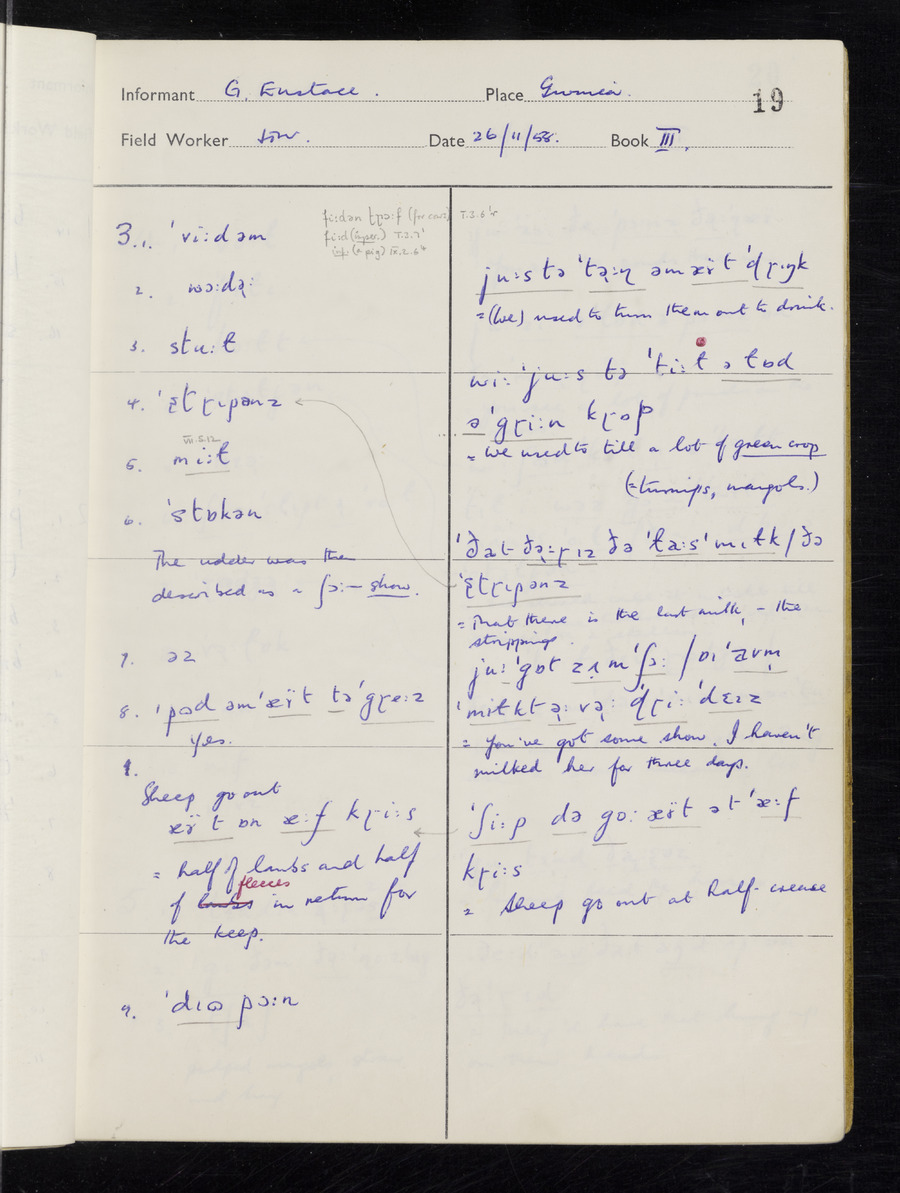 Informant G. Eustace. Place Gwinear.
19
Field Worker Date 26/11/58. Book III.
fiːdən tɽɔːf (for cows) T.3.6
fiːd (super.) T.3.7
(a pig) IX.2.6
3.1. ˈviːdəm
2. wɔːdə̣ː
3. stuːt
4. ˈʂtɽɩpənz
VII.5.12
5. miːɫt
6. ˈstɒkən
The udder was the
described as a ʃɔː— show.
7. əz
8. ˈpɒd əmˈæÿt təˈgɽeːz
yes.
9.
Sheep go out
æÿt ɒn æːf kɽiːs
= half of lambs and half
fleeces
of lambs in return for
the keep.
9. ˈdɩɷ pɔːn
juːstə ˈtə̣ːɳ əm æÿt ˈdɽɩŋk
= (We) used to turn them out to drink.
wiː ˈjuːs tə ˈtiːɫ ə lɒd
əˈgɽiːn kɽɔp
= We used to till a lot of green crop
(= turnips, mangols.)
ˈðat ðə̣ːɽ ɩz ðə ˈlaːsˈmɩɫk / ðə
ˈʂtɽɩpənz
= That there is the last milk, – the
strippings.
juːˈgɒt zʌmˈʃɔː / ɒɩˈævm̩
ˈmɩɫkt ə̣ː və̣ː ˈdɽiːˈdɛɩz
= You've got some show. I haven't
milked her for three days.
ˈʃiːp də goː æÿt ət ˈæːf
kɽiːs
= Sheep go out at half-crease